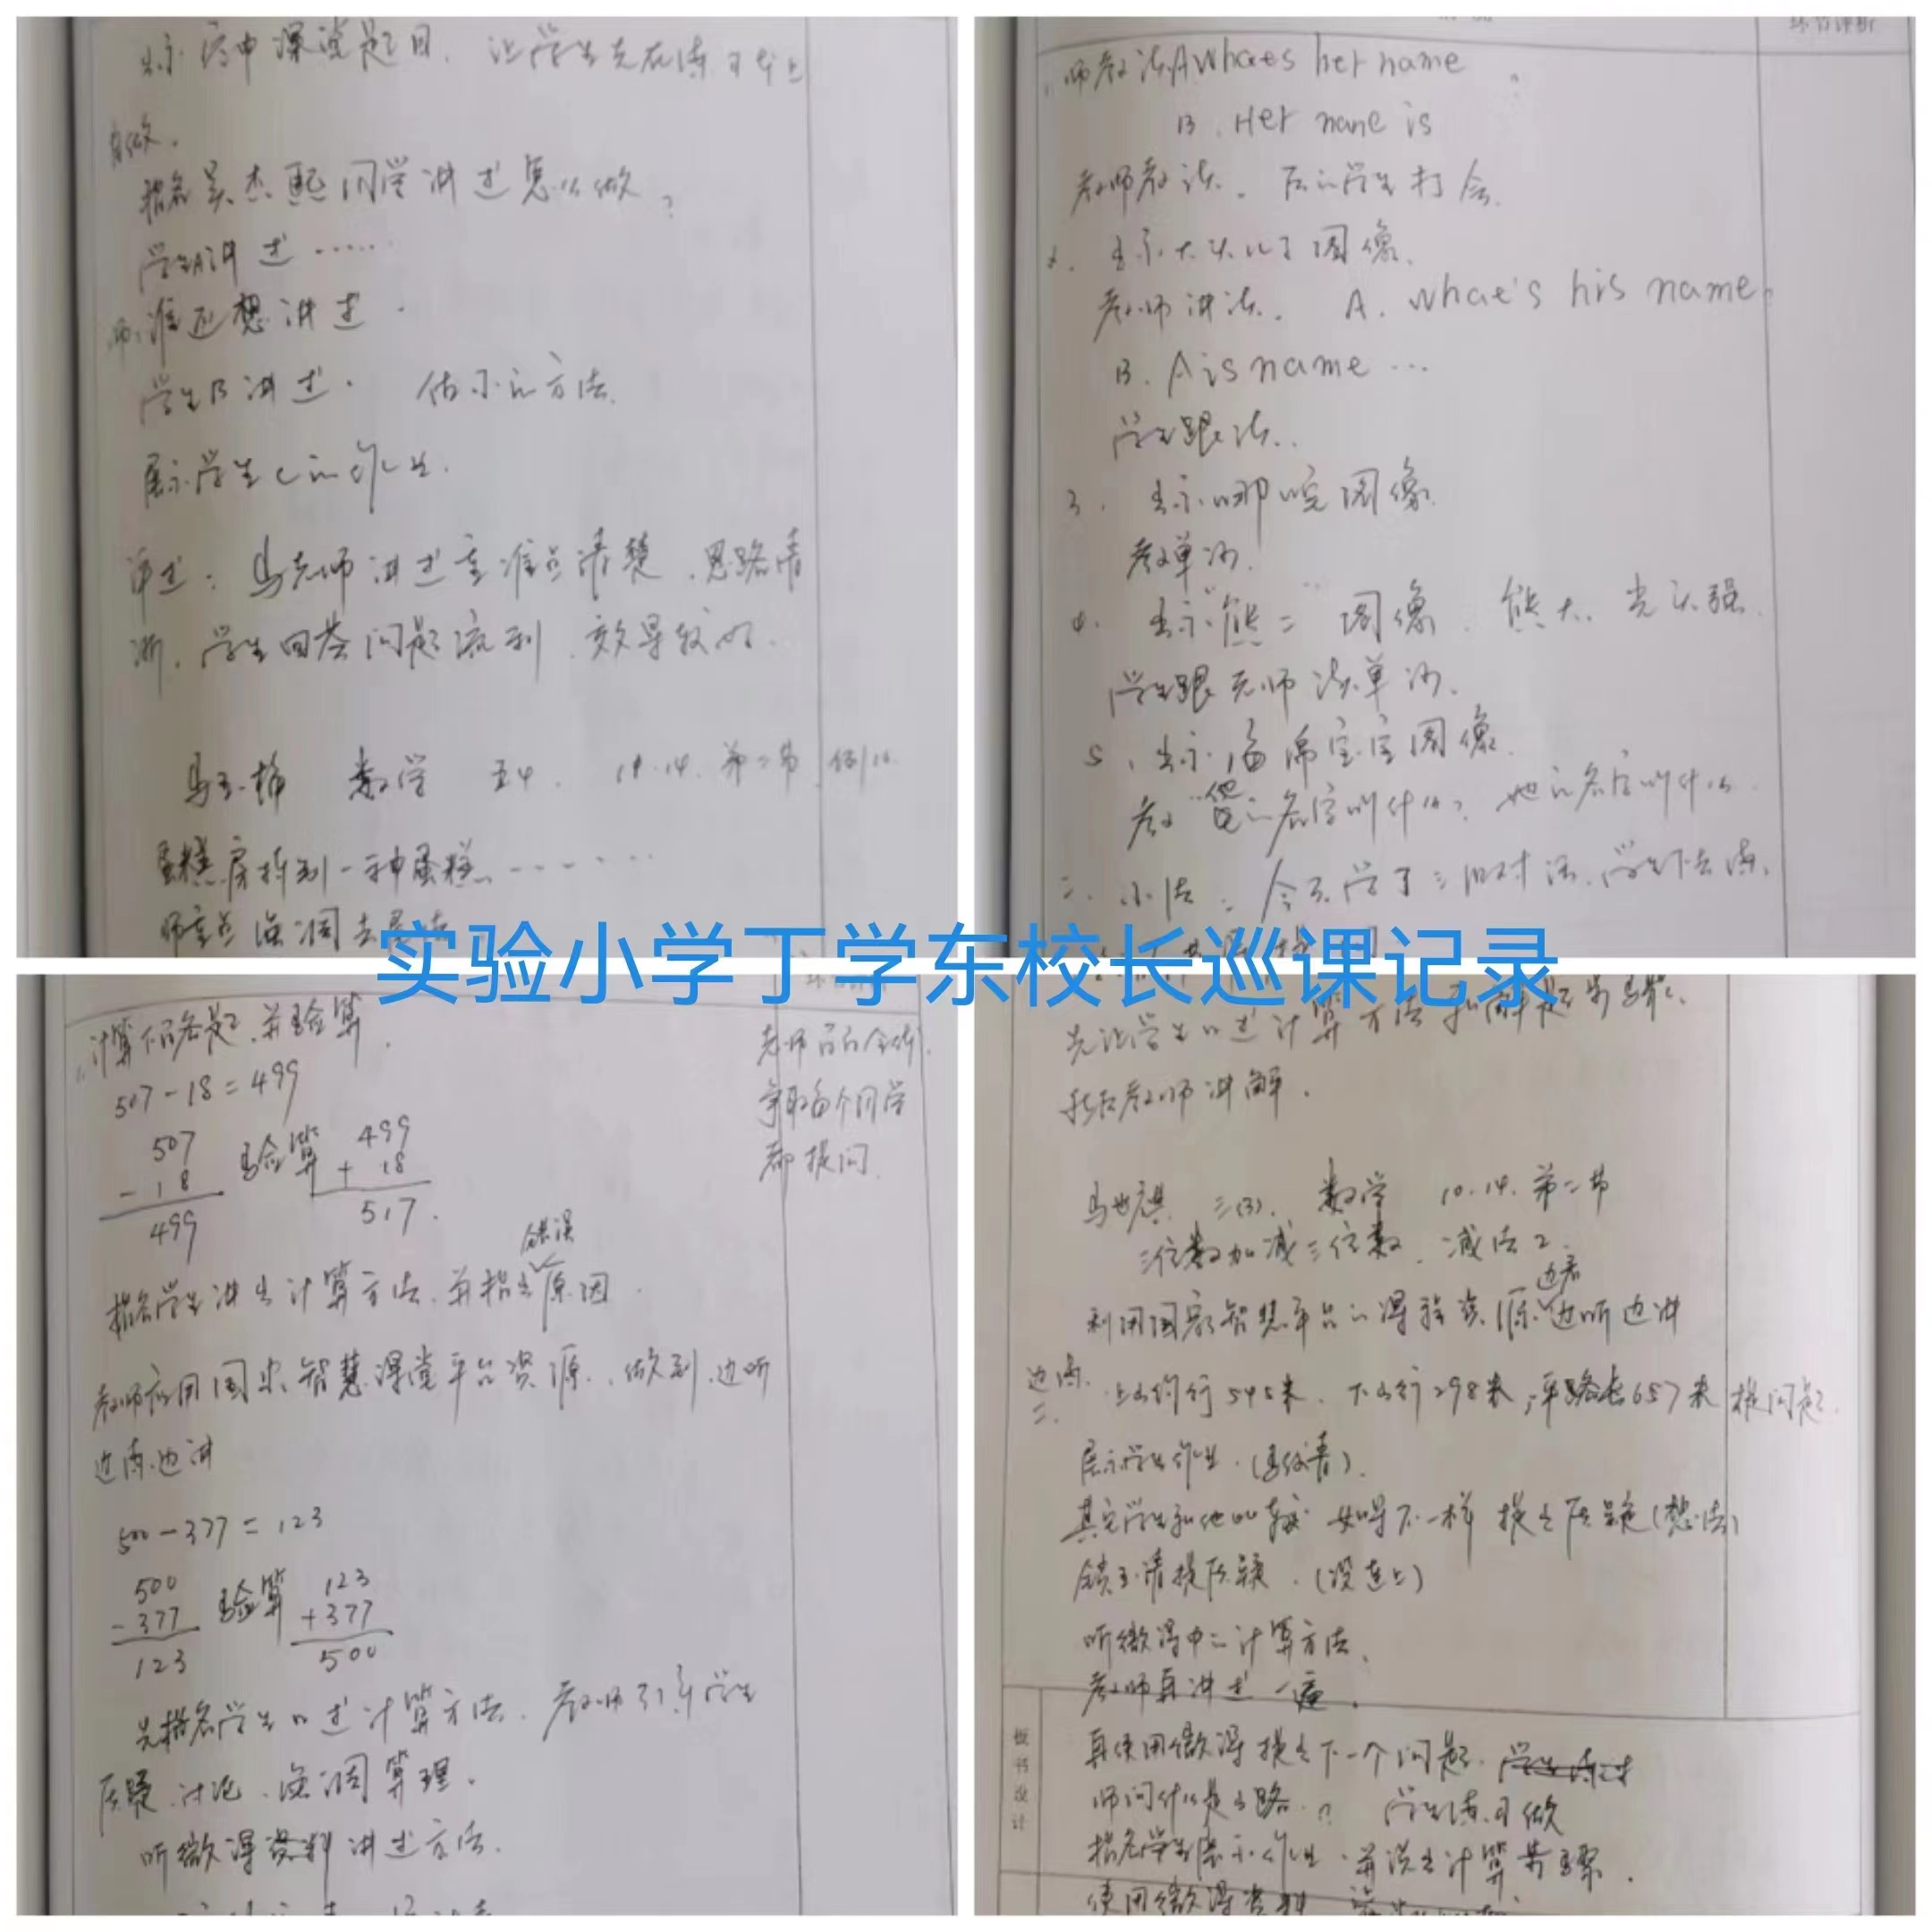 出示书中课堂题目，让学生先在练习本上
自做。
指名吴杰配同学讲述怎么做？
学生A讲述……
师：谁还想讲述．
学生B讲述．估小的方法．
展示学生C的作业．
评述：马老师讲述重难点清楚，思路清
晰，学生回答问题流利，效果较好．
数学 五4． 10.14. 第二节 例10.
蛋糕房特制一种蛋糕……
师重点强调去
师教读A whaes her name
B. Her name is
教师教读．后的学生打会．
2. 出示大头儿子图像．
教师讲读． A. whae's his name?
B. Ais name …
学生跟读．．
3. 出示哪吒图像
教单词．
4. 出示"熊二"图像．熊大．光头强．
学生跟老师读单词．
5、出示海绵宝宝图像．
教"他的名字叫什么？她的名字叫什么．
二．小结：今天学了三组对话．学生下去练．
实验小学丁学东校长巡课记录
环节评析
1. 计算下面各题．并验算．
507-18=499
507 验算 499
-18 + 18
499 517.
老师面向全体．
争取每个同学
都提问．
错误
指名学生讲出计算方法．并指出原因．
教师应用国家智慧课堂平台资源．做到．边听
边练边讲
500-377=123
500 验算 123
-377 +377
123 500
先指名学生口述计算方法．教师引导学生
质疑．讨论．强调算理．
听微课资料讲述方法．
先让学生口述计算方法和解题步骤．
然后教师讲解．
三(3)． 数学 10.14. 第二节
三位数加减三位数．减法2．
边看
利用国家智慧平台的课程资源．边听边讲
边练．
二．上山约行545米．下山行298米，平路长657米 提问题．
展示学生作业．
其它学生和他比较 如果不一样 提出质疑(想法)
请提质疑．(没连上)
听微课中的计算方法．
教师再讲述一遍．
再使用微课提出下一个问题．
师问什么是山路．？ 学生练习做
指名学生展示作业．并说出计算步骤．
使用微课资料
板书设计